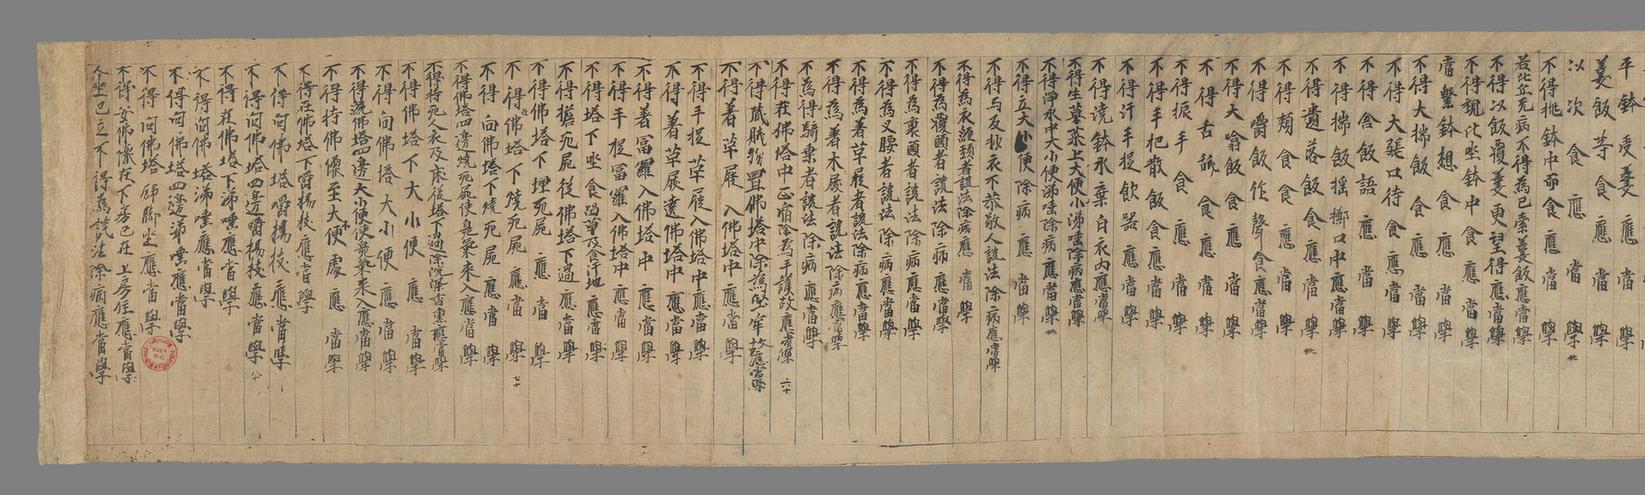 平鉢受羹應當學
羹飯等食應當學
以次食應當學
不得挑鉢中而食應當學
若比丘无病不得為已索羹飯應當學
不得以飯覆羹更望得應當學
不得視比坐鉢中食應當學
當繫鉢想食應當學
不得大摶飯食應當學
不得大張口待食應當學
不得含飯語應當學
不得摶飯擲口中應當學
不得遺落飯食應當學
不得頰食食應當學
不得嚼飯作聲食應當學
不得大噏飯食應當學
不得舌舐食應當學
不得振手食應當學
不得手把散飯食應當學
不得汙手捉飲器應當學
不得洗鉢水棄白衣內應當學
不得生草菜上大便小涕唾除病應當學
不得淨水中大小便涕唾除病應當學
不得立大小便除病應當學
不得与反抄衣不恭敬人說法除病應當學
不得為衣纏頸者說法除病應當學
不得為覆頭者說法除病應當學
不得為裹頭者說法除病應當學
不得為叉腰者說法除病應當學
不得為著草屣者說法除病應當學
不得為著木屐者說法除病應當學
不得為騎乘者說法除病應當學
不得在佛塔中止宿除為守護故應當學 六十
不得藏財物置佛塔中除為堅牢故應當學
不得著草屣入佛塔中應當學
不得手捉草屣入佛塔中應當學
不得著草屣遶佛塔中應當學
不得著富羅入佛塔中應當學
不得手捉富羅入佛塔中應當學
不得塔下坐食留草及食汙地應當學
不得擔死屍從佛塔下過應當學
不得佛塔下埋死屍應當學
不得在佛塔下燒死屍應當學 七十
不得向佛塔下燒死屍應當學
不得佛塔四邊燒死屍使臭氣來入應當學
不得持死人衣及床從塔下過除浣染香熏應當學
不得佛塔下大小便應當學
不得向佛塔大小便應當學
不得繞佛塔四邊大小便使臭氣來入應當學
不得持佛像至大小便處應當學
不得在佛塔下嚼楊枝應當學
不得向佛塔嚼楊枝應當學
不得向佛塔四邊嚼楊枝應當學 八十
不得在佛塔下涕唾應當學
不得向佛塔涕唾應當學
不得向佛塔四邊涕唾應當學
不得向佛塔舒脚坐應當學
不得安佛像在下房已在上房住應當學
人坐已立不得為說法除病應當學